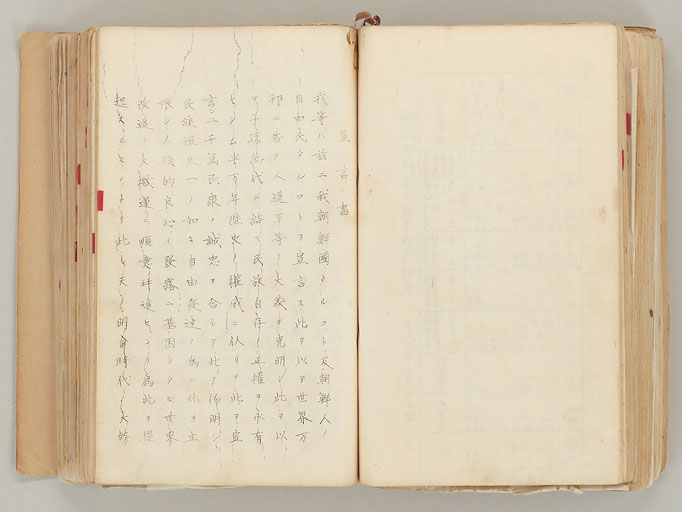 宣言書
我等ハ玆ニ我朝鮮國タルコト及朝鮮人ノ
自由民タルコトヲ宣言ス此ヲ以テ世界万
邦ニ告ケ人道平等ノ大義ヲ克明シ此ヲ以
テ子孫萬代ニ誥ケ民族自存ノ正權ヲ永有
セシム半万年歴史ノ權威ニ仗リテ此ヲ宣
言シ二千萬民衆ノ誠忠ヲ合シテ此ヲ佈明シ
民族恒久一ノ如キ自由發達ノ為ニ此ヲ主
張シ人類的良心ノ發露ニ基因シタル世界
改造ノ大機運ニ順應幷進センカ為此ヲ提
起スルモノナリ此レ天ノ明命時代ノ大勢